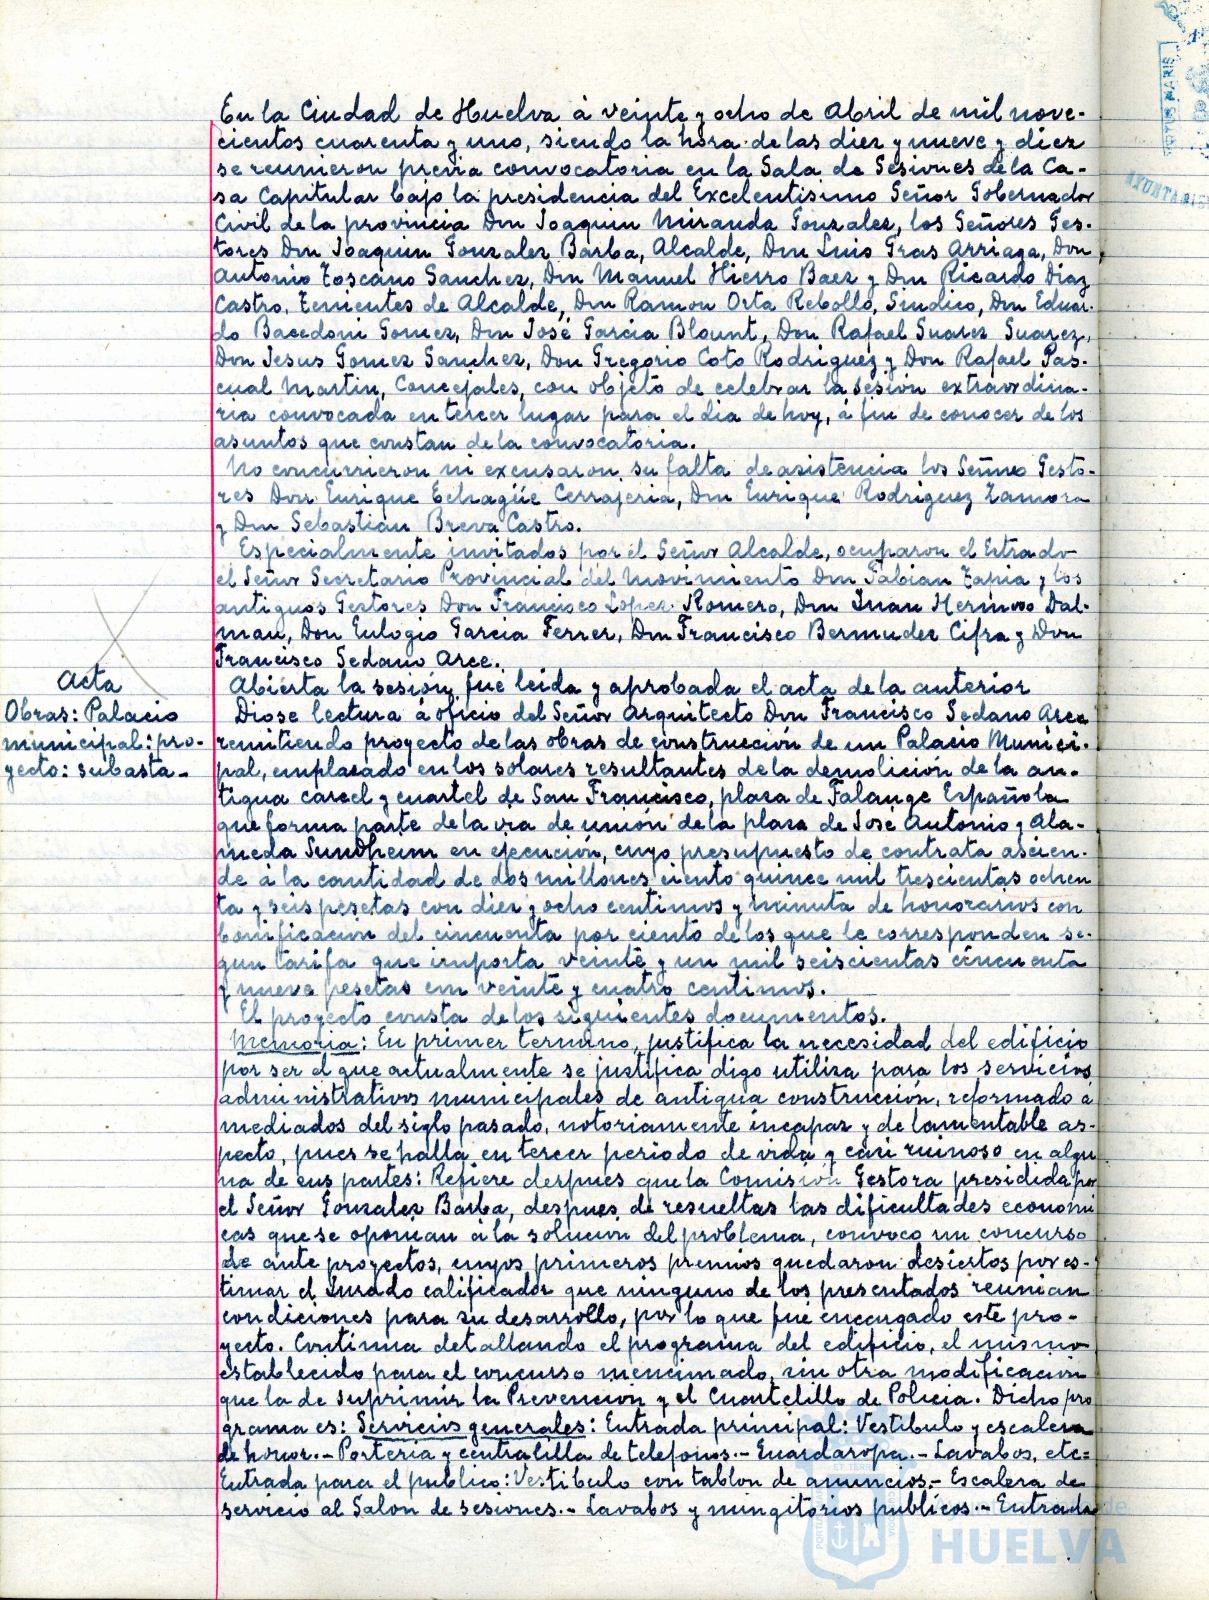 En la Ciudad de Huelva á veinte y ocho de Abril de mil nove-
cientos cuarenta y uno, siendo la hora de las diez y nueve y diez
se reunieron previa convocatoria en la Sala de Sesiones de la Ca-
sa Capitular bajo la presidencia del Excelentisimo Señor Gobernador
Civil de la provincia Don Joaquin Miranda Gonzalez, los Señores Ges-
tores Don Joaquin Gonzalez Barba, Alcalde, Don Luis Gras Arriaga, Don
Antonio Toscano Sanchez, Don Manuel Hierro Baez y Don Ricardo Diaz
Castro, Tenientes de Alcalde, Don Ramon Orta Rebollo, Sindico, Don Eduar-
do Bacedoni Gomez, Don José Garcia Blount, Don Rafael Suarez Suarez,
Don Jesus Gomez Sanchez, Don Gregorio Coto Rodriguez y Don Rafael Pas-
cual Martin, Concejales, con objeto de celebrar la sesión extraordina-
ria convocada en tercer lugar para el dia de hoy, á fin de conocer de los
asuntos que constan de la convocatoria.
No concurrieron ni excusaron su falta de asistencia los Señores Gesto-
res Don Enrique Echagüe Cerrajeria, Don Enrique Rodriguez Zamora
y Don Sebastian Breva Castro.
Especialmente invitados por el Señor Alcalde, ocuparon el Estrado
el Señor Secretario Provincial del Movimiento Don Fabian Tapia y los
antiguos Gestores Don Francisco Lopez Romero, Don Juan Hermoso Dal-
mau, Don Eulogio Garcia Ferrer, Don Francisco Bermudez Cifra y Don
Francisco Sedano Arce.
Acta
Abierta la sesión, fué leida y aprobada el acta de la anterior
Obras: Palacio
municipal: pro-
yecto: subasta-
Diose lectura á oficio del Señor Arquitecto Don Francisco Sedano Arce
remitiendo proyecto de las obras de construcción de un Palacio Munici-
pal, emplazado en los solares resultantes de la demolición de la an-
tigua carcel y cuartel de San Francisco, plaza de Falange Española
que forma parte de la via de unión de la plaza de José Antonio y Ala-
meda Sundheim en ejecución, cuyo presupuesto de contrata ascien-
de á la cantidad de dos millones ciento quince mil trescientas ochen
ta y seis pesetas con diez y ocho centimos y minuta de honorarios con
bonificacion del cincuenta por ciento de los que le corresponden se-
gun tarifa que importa veinte y un mil seiscientas cincuenta
y nueve pesetas con veinte y cuatro centimos.
El proyecto consta de los siguientes documentos.
Memoria: En primer termino, justifica la necesidad del edificio
por ser el que actualmente se justifica digo utiliza para los servicios
administrativos municipales de antigua construcción, reformado á
mediados del siglo pasado, notoriamente incapaz y de lamentable as-
pecto, pues se halla en tercer periodo de vida y casi ruinoso en algu
na de sus partes: Refiere despues que la Comisión Gestora presidida por
el Señor Gonzalez Barba, despues de resueltas las dificultades economi
cas que se oponian á la solucion del problema, convoco un concurso
de ante proyectos, cuyos primeros premios quedaron desiertos por es-
timar el Jurado calificador que ninguno de los presentados reunian
condiciones para su desarrollo, por lo que fue encargado este pro-
yecto. Continua detallando el programa del edificio, el mismo
establecido para el concurso mencionado, sin otra modificación
que la de suprimir la Prevencion y el Cuartelillo de Policia. Dicho pro
grama es: Servicios generales: Entrada principal: Vestibulo y escalera
de honor.- Porteria y centralilla de telefonos.- Guardaropa.- Lavabos, etc=
Entrada para el publico: Vestibulo con tablon de anuncios.- Escalera de
servicio al Salon de sesiones.- Lavabos y mingitorios publicos.- Entrada
HUELVA